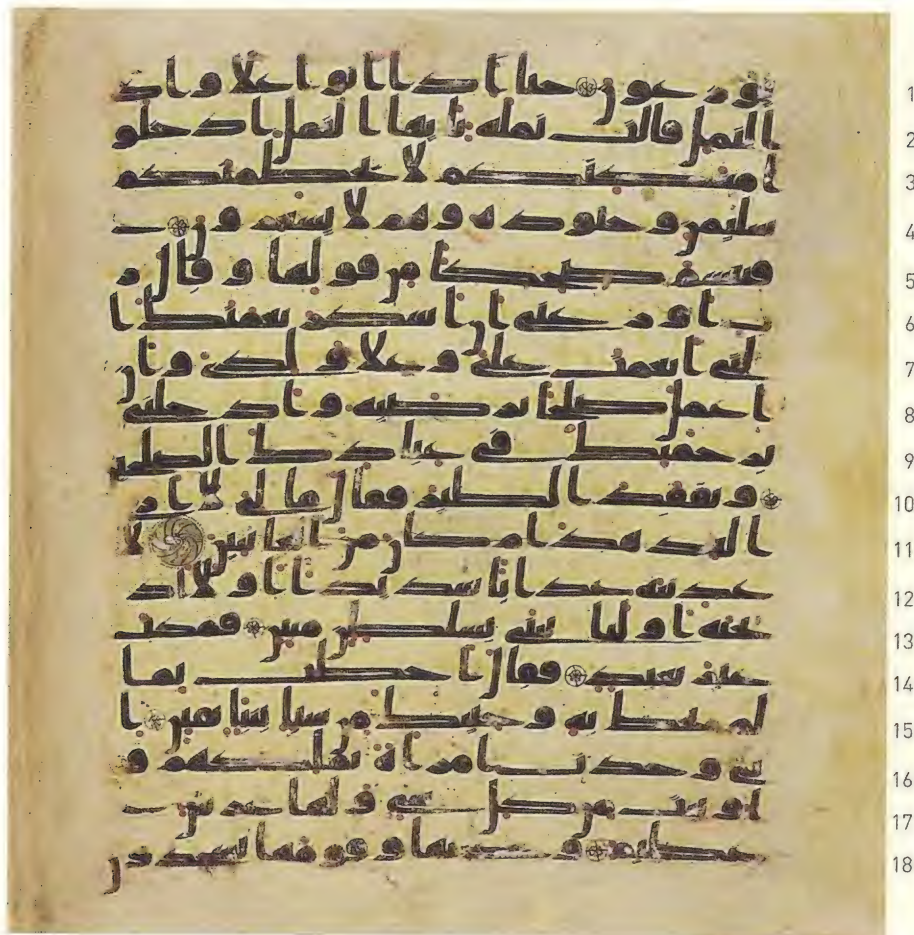 يوزعون حتى اذا اتوا على واد 1
النمل قالت نملة يايها النمل ادخلو 2
ا مسكنكم لا يحطمنكم 3
سليمن وجنوده وهم لا يشعرون 4
فتبسم ضحكا من قولها وقال ر 5
ب اوزعني ان اشكر نعمتك ا 6
لتي انعمت علي وعلى ولدي وان 7
اعمل صلحا ترضيه وادخلني 8
برحمتك في عبادك الصلحين 9
وتفقد الطير فقال ما لي لا ارى 10
الهدهد ام كان من الغايبين لا 11
عذبنه عذابا شديدا او لااذ 12
بحنه او لياتيني بسلطن مبين فمكث 13
غير بعيد فقال احطت بما 14
لم تحط به وجيتك من سبا بنبا يقين ا 15
ني وجدت امراة تملكهم و 16
اوتيت من كل شي ولها عرش 17
عظيم وجدتها وقومها يسجدون 18